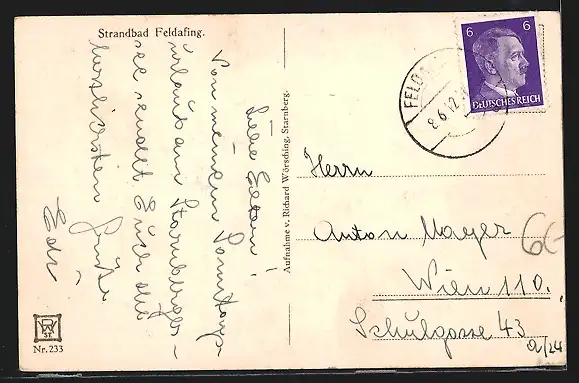 Strandbad Feldafing.
Liebe Eltern!
Von meinem Sonntags-
urlaub am Starnberger-
see sendet Euch die
herzlichsten Grüße
Edi
Aufnahme v. Richard Wörsching, Starnberg.
Nr. 233
6 6
DEUTSCHES REICH
FELD
8.6.42
Herrn
Anton Mayer
Wien 110.
Schulgasse 43